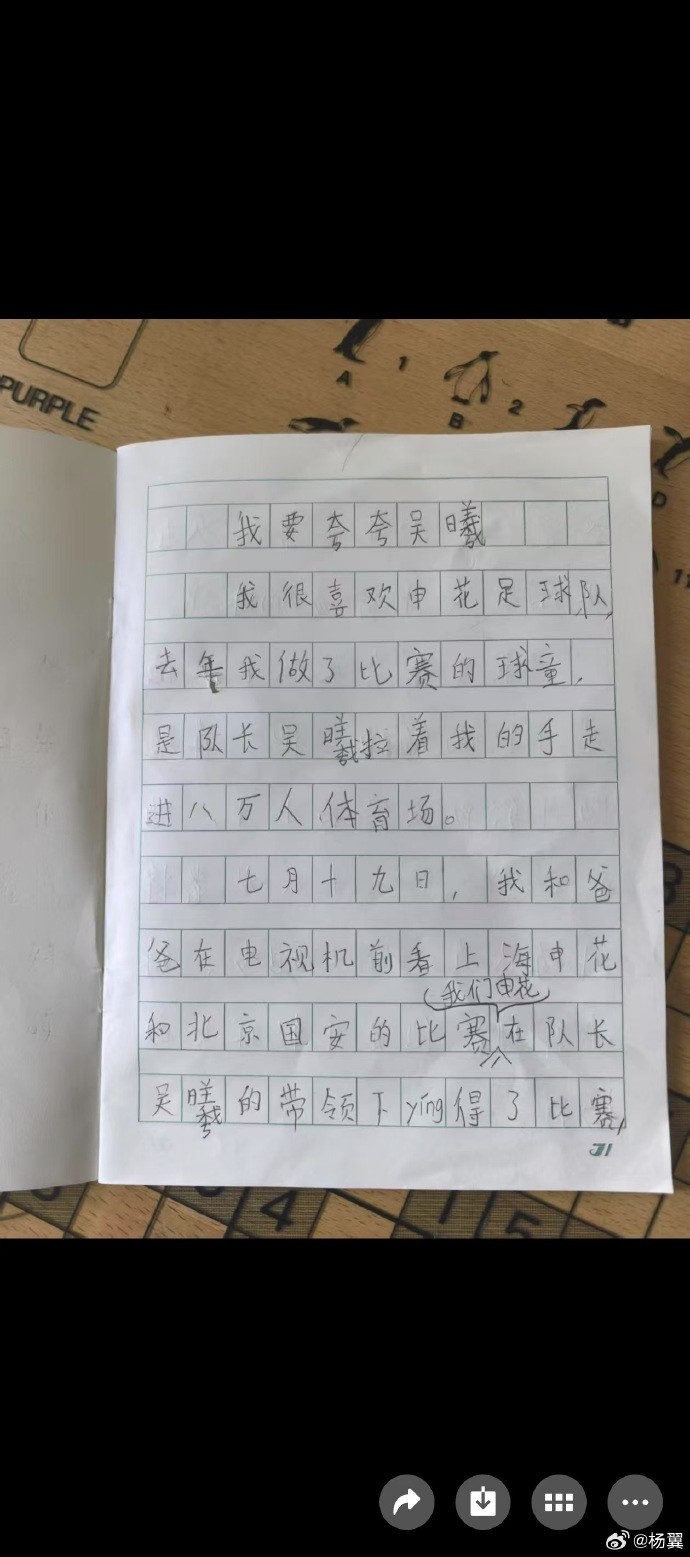 PURPLE
A
1
B
2
D
11
我要夸夸吴曦
我很喜欢申花足球队,
去年我做了比赛的球童,
是队长吴曦拉着我的手走
进八万人体育场。
七月十九日,我和爸
爸在电视机前看上海申花
(我们申花)
和北京国安的比赛在队长
吴曦的带领下ying得了比赛,
31
3
4
1
5
@杨翼